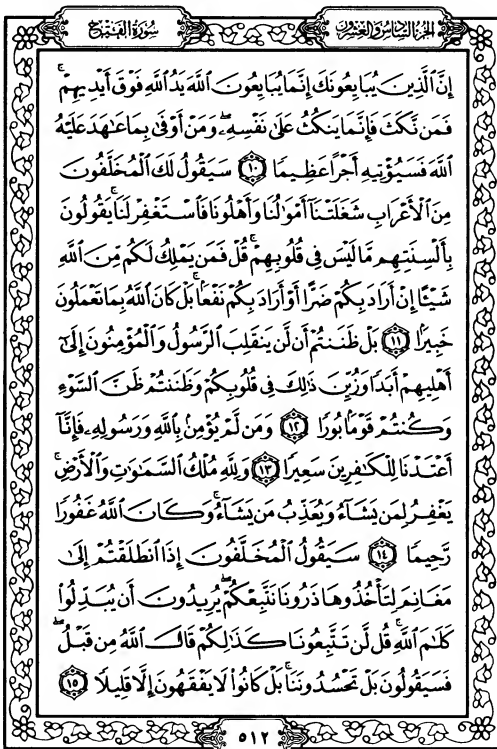 سُورَةُ الفَتْحِ
الجزء السادس والعشرون
إِنَّ ٱلَّذِينَ يُبَايِعُونَكَ إِنَّمَا يُبَايِعُونَ ٱللَّهَ يَدُ ٱللَّهِ فَوْقَ أَيْدِيهِمْ ۚ
فَمَن نَّكَثَ فَإِنَّمَا يَنكُثُ عَلَىٰ نَفْسِهِۦ ۖ وَمَنْ أَوْفَىٰ بِمَا عَٰهَدَ عَلَيْهُ
ٱللَّهَ فَسَيُؤْتِيهِ أَجْرًا عَظِيمًا ١٠ سَيَقُولُ لَكَ ٱلْمُخَلَّفُونَ
مِنَ ٱلْأَعْرَابِ شَغَلَتْنَآ أَمْوَٰلُنَا وَأَهْلُونَا فَٱسْتَغْفِرْ لَنَا ۚ يَقُولُونَ
بِأَلْسِنَتِهِم مَّا لَيْسَ فِى قُلُوبِهِمْ ۚ قُلْ فَمَن يَمْلِكُ لَكُم مِّنَ ٱللَّهِ
شَيْـًٔا إِنْ أَرَادَ بِكُمْ ضَرًّا أَوْ أَرَادَ بِكُمْ نَفْعًۢا ۚ بَلْ كَانَ ٱللَّهُ بِمَا تَعْمَلُونَ
خَبِيرًۢا ١١ بَلْ ظَنَنتُمْ أَن لَّن يَنقَلِبَ ٱلرَّسُولُ وَٱلْمُؤْمِنُونَ إِلَىٰٓ
أَهْلِيهِمْ أَبَدًا وَزُيِّنَ ذَٰلِكَ فِى قُلُوبِكُمْ وَظَنَنتُمْ ظَنَّ ٱلسَّوْءِ
وَكُنتُمْ قَوْمًۢا بُورًا ١٢ وَمَن لَّمْ يُؤْمِنۢ بِٱللَّهِ وَرَسُولِهِۦ فَإِنَّآ
أَعْتَدْنَا لِلْكَٰفِرِينَ سَعِيرًا ١٣ وَلِلَّهِ مُلْكُ ٱلسَّمَٰوَٰتِ وَٱلْأَرْضِ ۚ
يَغْفِرُ لِمَن يَشَآءُ وَيُعَذِّبُ مَن يَشَآءُ ۚ وَكَانَ ٱللَّهُ غَفُورًا
رَّحِيمًا ١٤ سَيَقُولُ ٱلْمُخَلَّفُونَ إِذَا ٱنطَلَقْتُمْ إِلَىٰ
مَغَانِمَ لِتَأْخُذُوهَا ذَرُونَا نَتَّبِعْكُمْ ۖ يُرِيدُونَ أَن يُبَدِّلُوا۟
كَلَٰمَ ٱللَّهِ ۚ قُل لَّن تَتَّبِعُونَا كَذَٰلِكُمْ قَالَ ٱللَّهُ مِن قَبْلُ ۖ
فَسَيَقُولُونَ بَلْ تَحْسُدُونَنَا ۚ بَلْ كَانُوا۟ لَا يَفْقَهُونَ إِلَّا قَلِيلًا ١٥
٥١٢